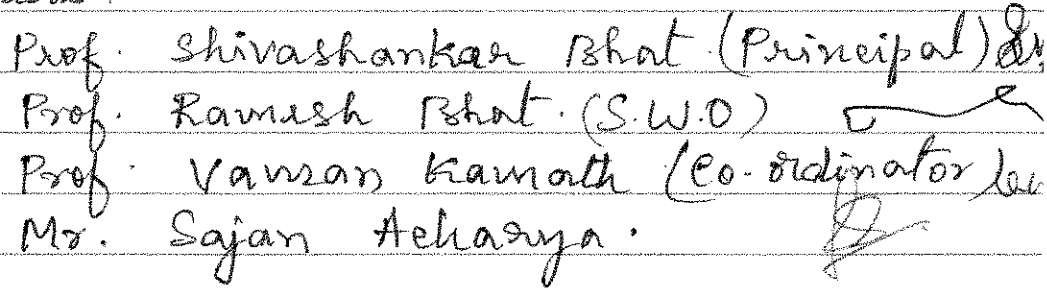 Prof. Shivashankar Bhat (Principal)
Prof. Ramesh Bhat. (S.W.O)
Prof. Vaman Kamath (Co-ordinator
Mr. Sajan Acharya.